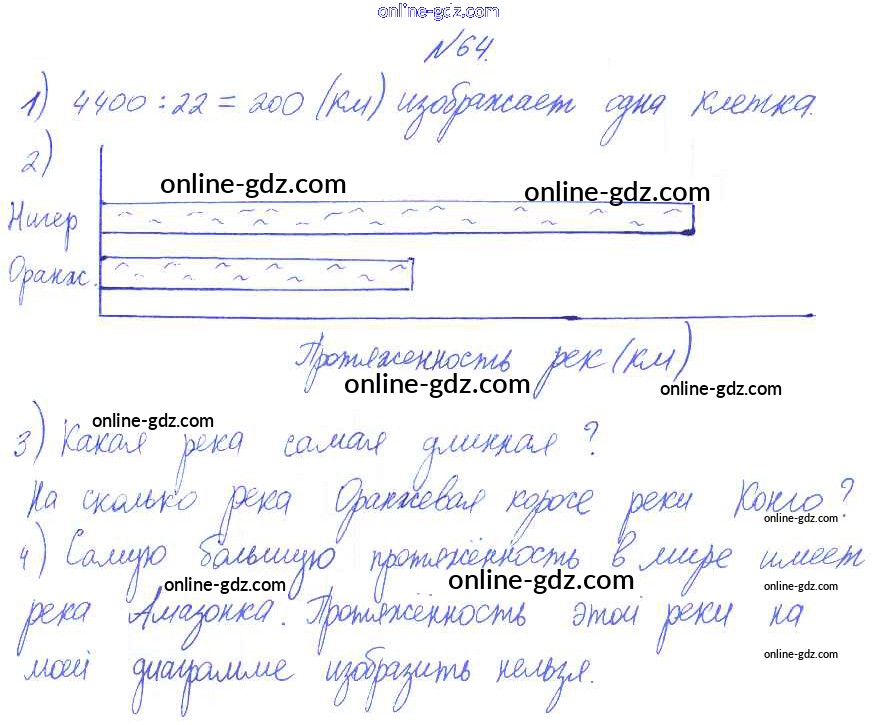 online-gdz.com
№64.
1) 4400 : 22 = 200 (км) изображает одна клетка.
2)
online-gdz.com
online-gdz.com
Нигер
Оранж.
Протяженность рек (км)
online-gdz.com
online-gdz.com
online-gdz.com
3) Какая река самая длинная?
На сколько река Оранжевая короче реки Конго?
online-gdz.com
4) Самую большую протяжённость в мире имеет
online-gdz.com
online-gdz.com
online-gdz.com
река Амазонка. Протяжённость этой реки на
online-gdz.com
моей диаграмме изобразить нельзя.